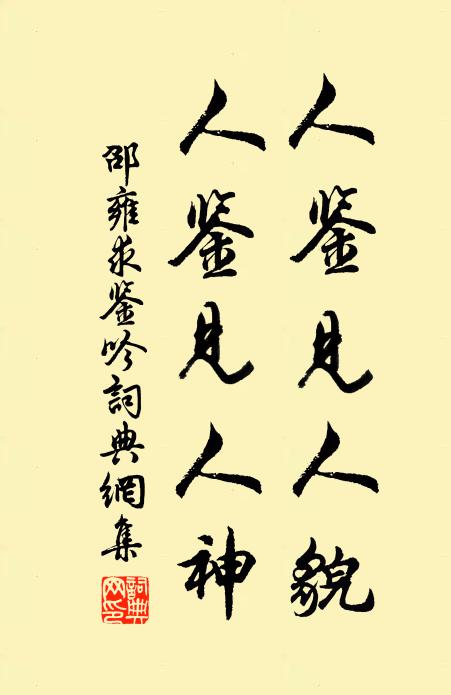 人鉴見人貌
人鉴見人神
邵雍求鉴吟詞典網集
詞典網印